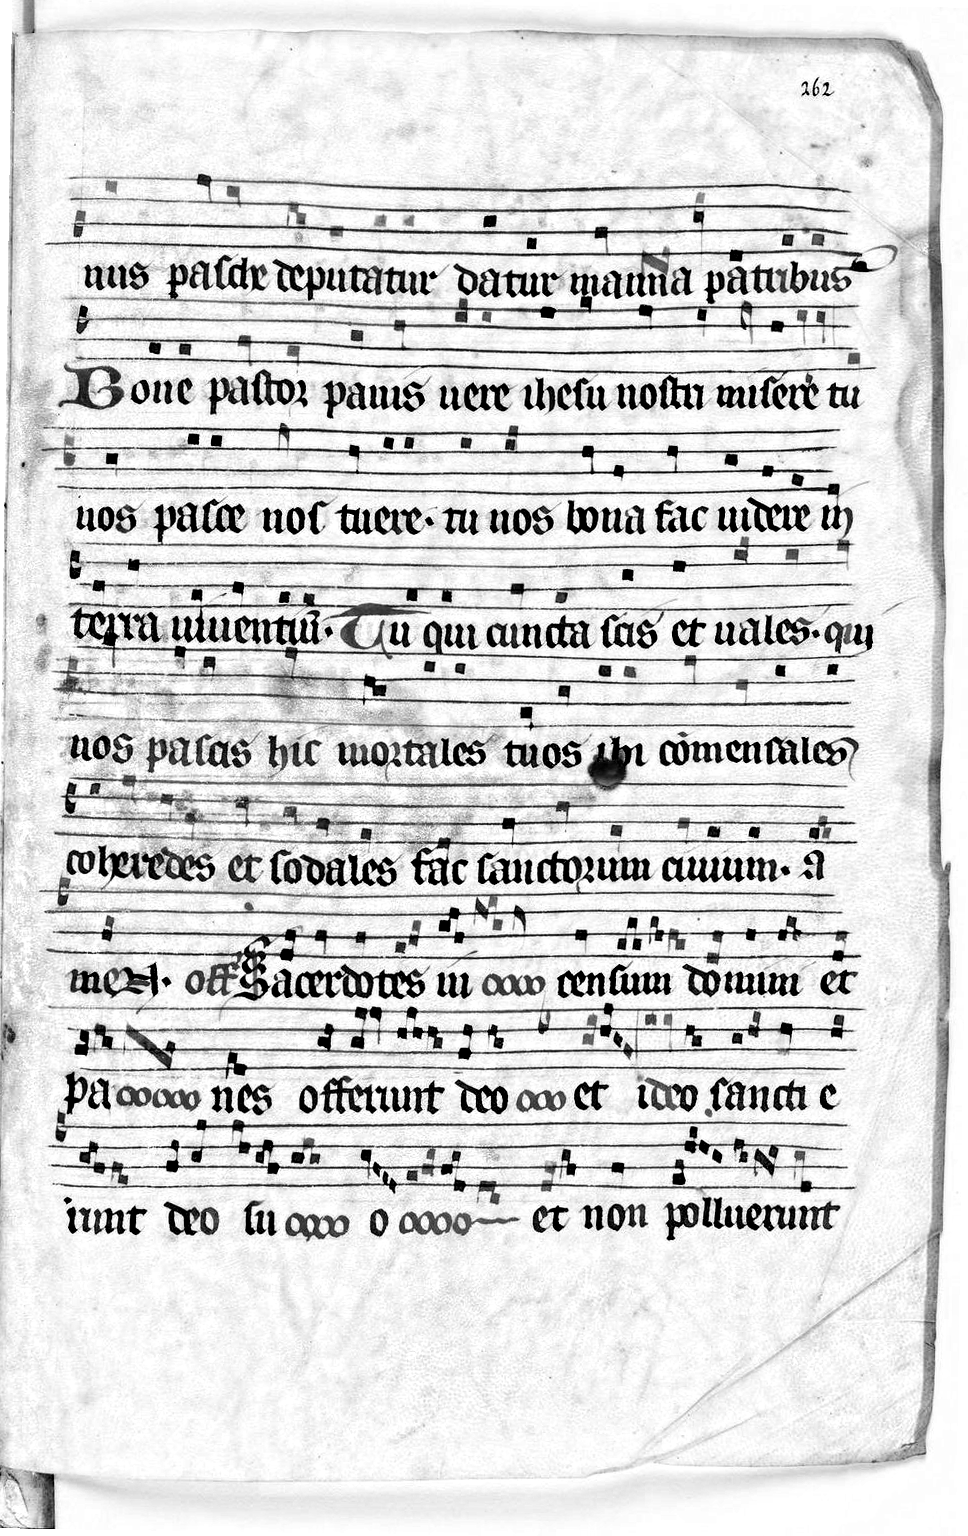 262
nus pasche deputatur datur manna patribus
Bone pastor panis uere ihesu nostri miserere tu
nos pasce nos tuere. tu nos bona fac uidere in
terra uiuentiū. Tu qui cuncta scis et uales. qui
nos pascis hic mortales tuos ibi cōmensales
coheredes et sodales fac sanctorum ciuium. A
men. off Sacerdotes in censum domini et
pa nes offerunt deo et ideo sancti e
runt deo su o et non polluerunt